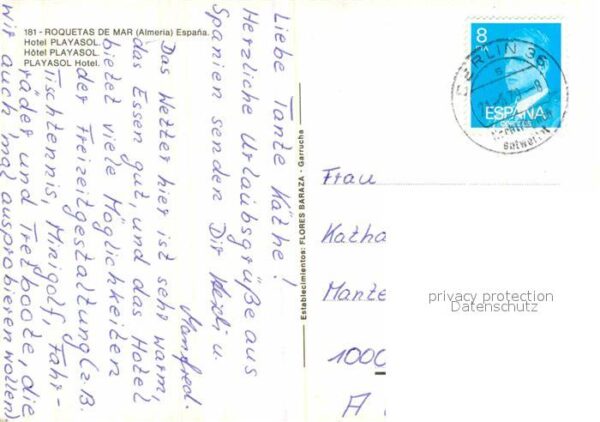 181 - ROQUETAS DE MAR (Almeria) España.
Hotel PLAYASOL.
Hôtel PLAYASOL.
PLAYASOL Hotel.
Liebe Tante Käthe!
Herzliche Urlaubsgrüße aus
Spanien senden Dir u.
Manfred.
Das Wetter hier ist sehr warm,
das Essen gut, und das Hotel
bietet viele Möglichkeiten
der Freizeitgestaltung (z.B.
Tischtennis, Minigolf, Fahr-
räder und Tretboote, die
wir auch mal ausprobieren wollen)
Establecimientos: FLORES BARAZA - Garrucha
8
PTA
ESPAÑA
CORREOS
BERLIN 36
Frau
Katha
Mante
1000
A
privacy protection
Datenschutz